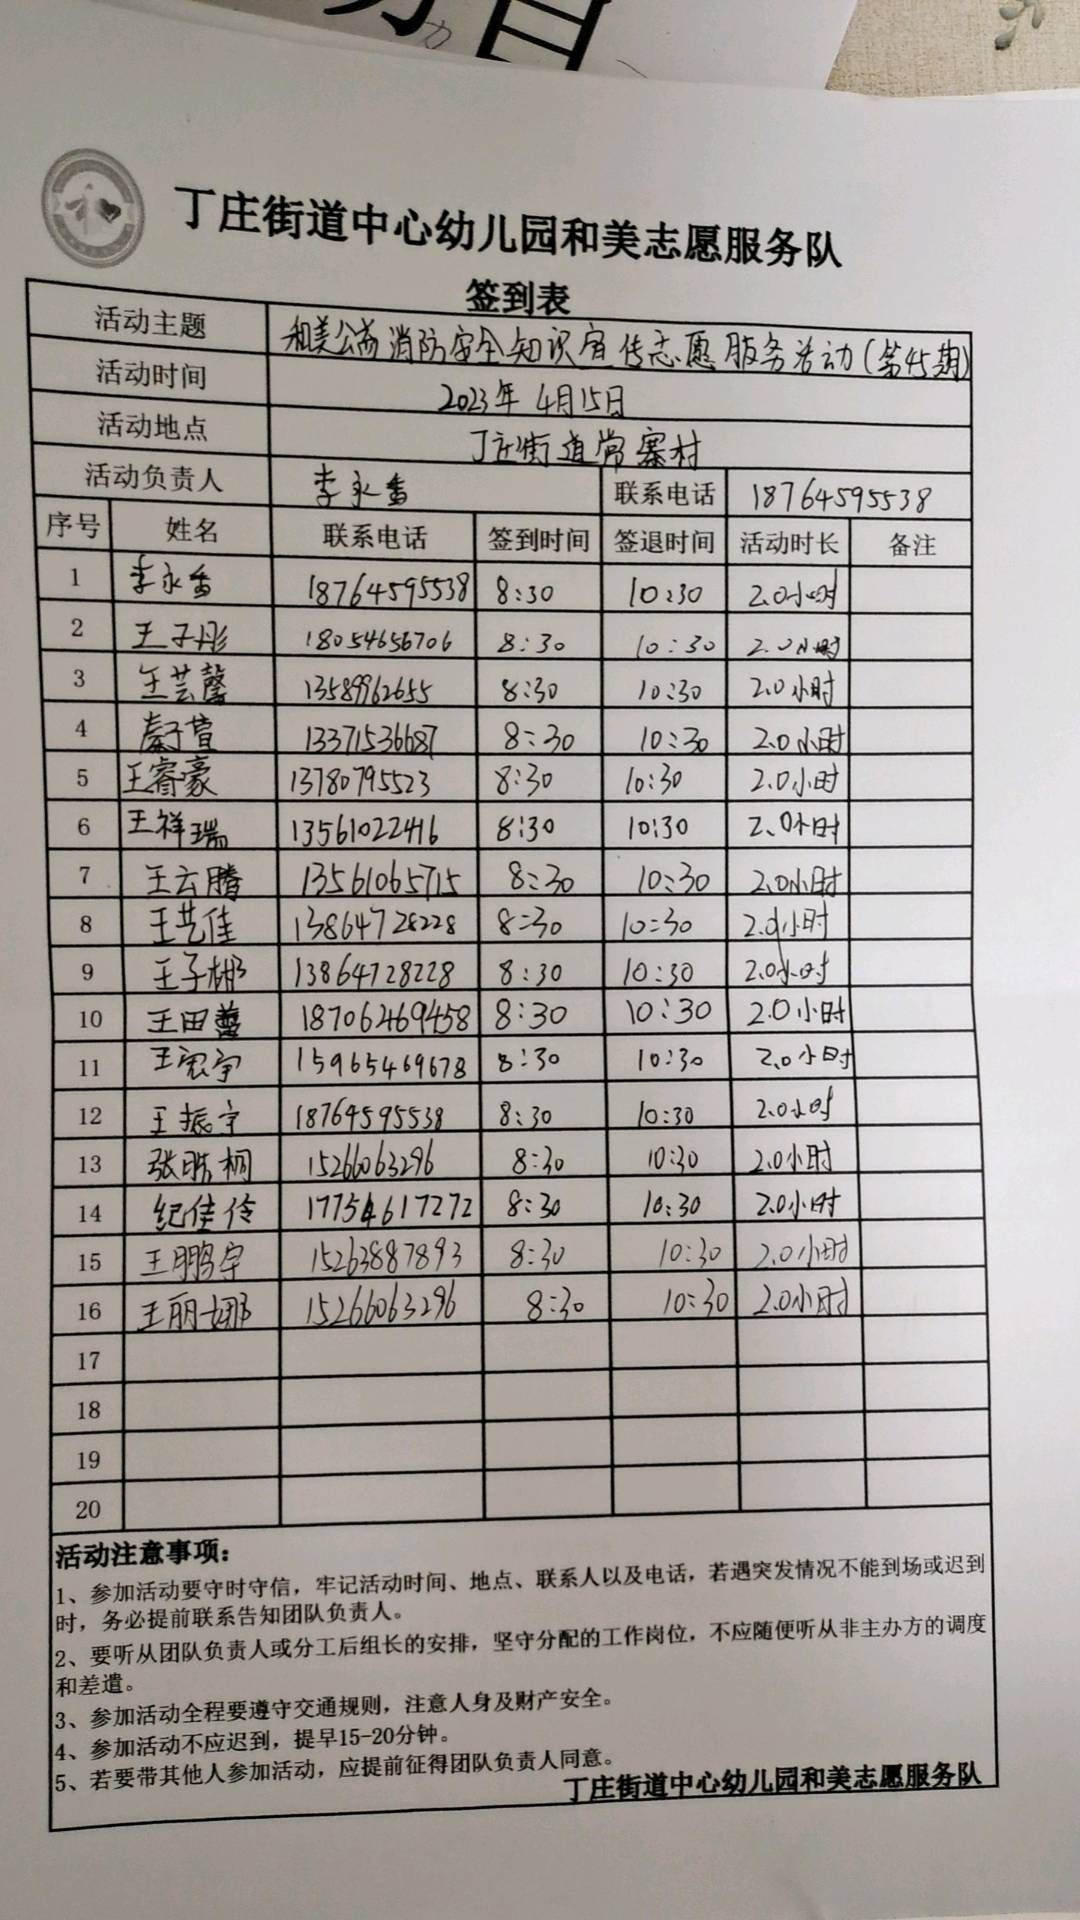 丁庄街道中心幼儿园和美志愿服务队
签到表
活动主题 和美公益消防安全知识宣传志愿服务活动(第45期)
活动时间 2023年4月15日
活动地点 丁庄街道常寨村
活动负责人 李永香 联系电话 18764595538
序号 姓名 联系电话 签到时间 签退时间 活动时长 备注
1 李永香 18764595538 8:30 10:30 2.0小时
2 王子彤 18054656706 8:30 10:30 2.0小时
3 王芸馨 13589962655 8:30 10:30 2.0小时
4 秦子萱 13371536687 8:30 10:30 2.0小时
5 王睿豪 13780795523 8:30 10:30 2.0小时
6 王祥瑞 13561022416 8:30 10:30 2.0小时
7 王云腾 13561065715 8:30 10:30 2.0小时
8 王艺佳 13864728228 8:30 10:30 2.0小时
9 王子彬 13864728228 8:30 10:30 2.0小时
10 王田蕾 187062469458 8:30 10:30 2.0小时
11 王宏宇 15965469678 8:30 10:30 2.0小时
12 王振宇 18764595538 8:30 10:30 2.0小时
13 张皓桐 15266063296 8:30 10:30 2.0小时
14 纪佳伶 17754617272 8:30 10:30 2.0小时
15 王鹏宇 15263887893 8:30 10:30 2.0小时
16 王丽娜 15266063296 8:30 10:30 2.0小时
17
18
19
20
活动注意事项：
1、参加活动要守时守信，牢记活动时间、地点、联系人以及电话，若遇突发情况不能到场或迟到
时，务必提前联系告知团队负责人。
2、要听从团队负责人或分工后组长的安排，坚守分配的工作岗位，不应随便听从非主办方的调度
和差遣。
3、参加活动全程要遵守交通规则，注意人身及财产安全。
4、参加活动不应迟到，提早15-20分钟。
5、若要带其他人参加活动，应提前征得团队负责人同意。
丁庄街道中心幼儿园和美志愿服务队